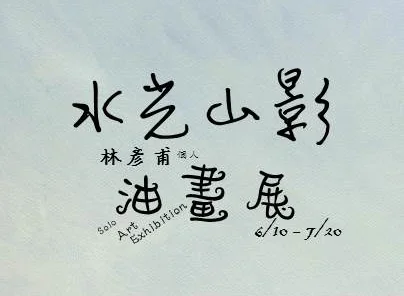 水光山影
林彥甫 個人
油畫展
Solo
Art
Exhibition
6/10 - 7/20